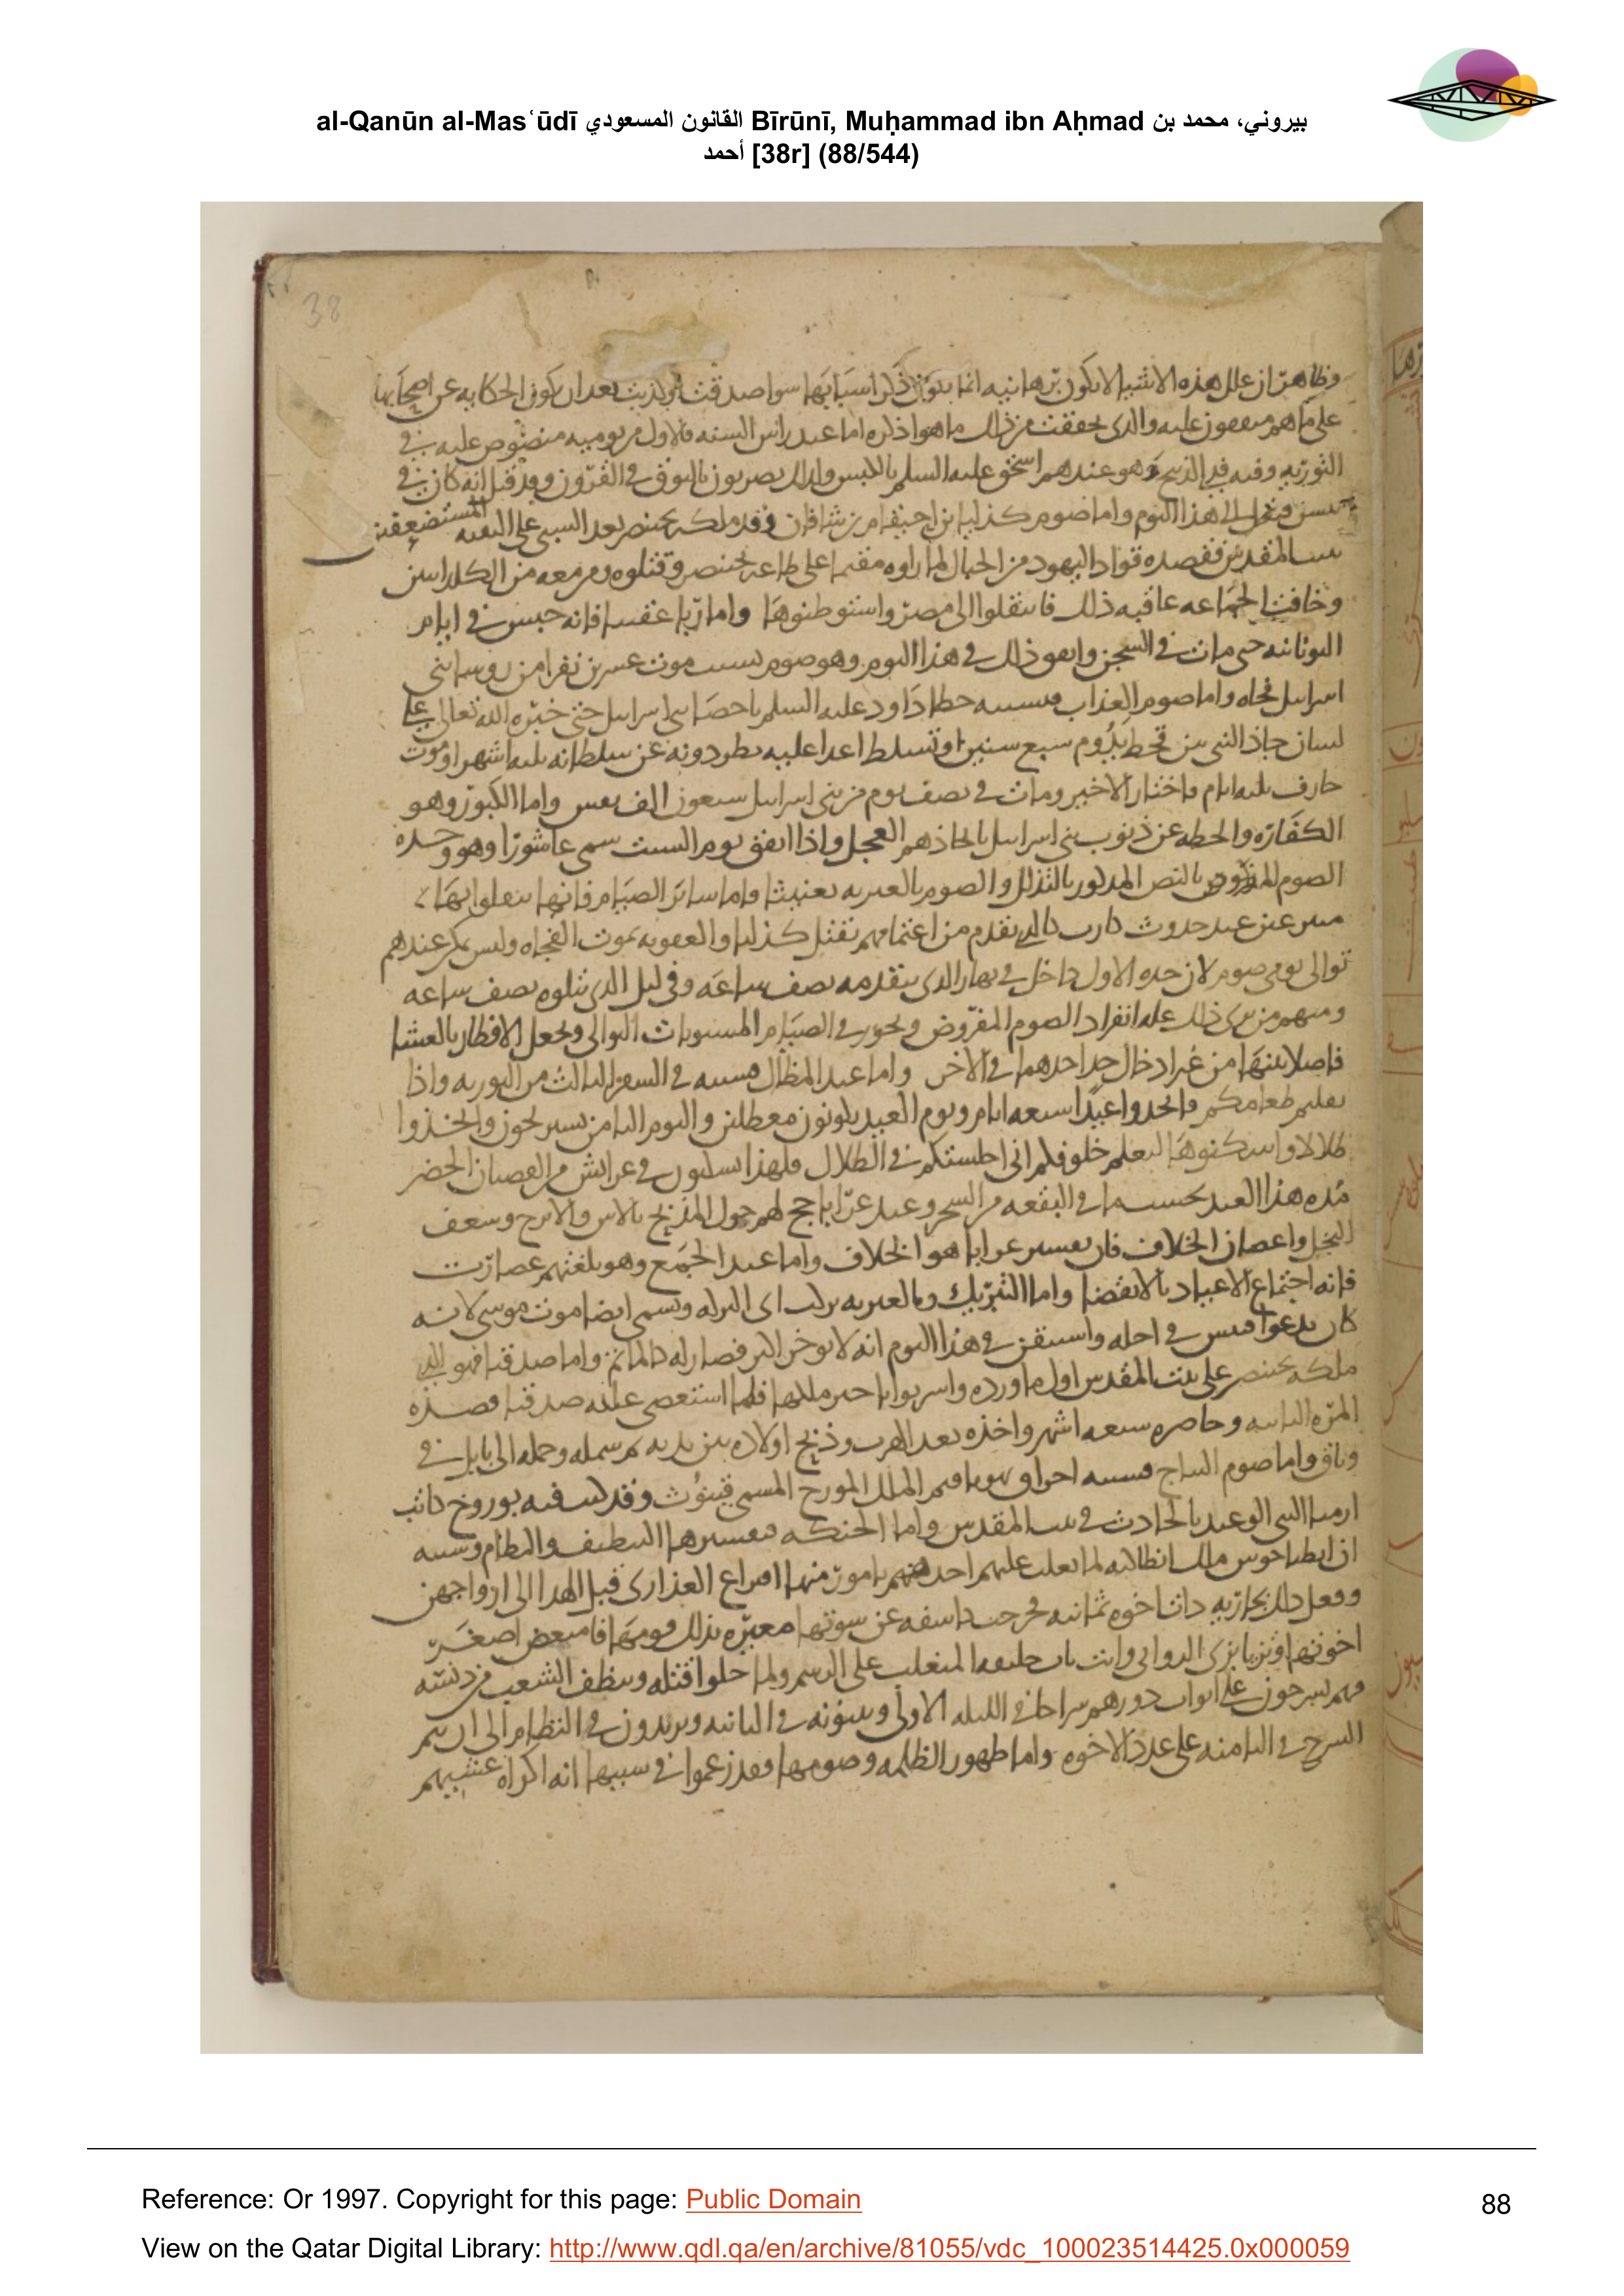 al-Qanūn al-Masʿūdī القانون المسعودي Bīrūnī, Muḥammad ibn Aḥmad بيروني، محمد بن
أحمد [38r] (88/544)
38
وظاهر ان علل هذه الاشيا لا تكون برهانيه انما ذكر اسبابها سوا صدقت او كذبت بعد ان تكون الحكايه عن اصحابها
على ما هم متفقون عليه والذي تحققت من ذلك ما هو اذكره اما عيد راس السنه فالاول من يوميه منصوص عليه في
التوريه وفيه فدي الذبيح وهو عندهم اسحق عليه السلم بالكبش ولذلك يضربون بالبوق في القرون وقد قيل انه كان في
هذا اليوم واما صوم كذليا بن احيقام بن شافان فقد ملكه بختنصر بعد السبي على البقيه المستضعفين
بيت المقدس فقصده قواد اليهود من الجبال لما راوه مقيما على طاعه بختنصر وقتلوه ومن معه من الكلدانيين
وخافت الجماعه عاقبه ذلك فانتقلوا الى مصر واستوطنوها واما ربا عقيبا فانه حبس في ايام
اليونانيه حتى مات في السجن واتفق ذلك في هذا اليوم وهو صوم بسبب موت عشرين نفرا من روسا بني
اسرايل فجاه واما صوم العذاب فسببه خطا داود عليه السلم باحصا بني اسرايل حتى خيره الله تعالى على
لسان جاذ النبي بين قحط يدوم سبع سنين او تسلط اعدا عليه يطردونه عن سلطانه ثلثه اشهر او موت
جارف ثلثه ايام فاختار الاخير ومات في نصف يوم من بني اسرايل سبعون الف نفس واما الكبور وهو
الكفاره والحطه عن ذنوب بني اسرايل باتخاذهم العجل واذا اتفق يوم السبت سمي عاشورا وهو وحده
الصوم المفروض بالنص المذكور بالتذلل والصوم بالعبريه تعنيثا واما ساير الصيام فانها
عند حدوث تقدم من اغتمامهم بقتل كذليا والعقوبه بموت الفجاه وليس يمكن عندهم
توالى يومي صوم لان حده الاول داخل في نهار الذي يتقدمه نصف ساعه وفي ليل الذي يتلوه نصف ساعه
ومنهم من يرى ذلك عله انفراد الصوم المفروض ويجوز في الصيام المسنونات التوالي ويجعل الافطار بالعشا
فاصلا بينها من غير ادخال حد احدهما في الاخر واما عيد المظال فسببه في السفر الثالث من التوريه واذا
طعامكم فاتخذوا عيدا سبعه ايام ويوم العيد يكونون معطلين واليوم الثامن يستريحون واتخذوا
ظلالا واسكنوها ليعلم خلوفكم اني اجلستكم في الظلال فلهذا يسكنون في عرايش من الغصان الخضر
مده هذا العيد
النخل واغصان الخلاف فان تفسير عرابا هو الخلاف واما عيد الجمع وهو بلغتهم عصارت
فانه اجتماع الاعياد بالانقضا واما التبريك وبالعبريه بركث اي البركه ويسمى ايضا موت موسى لانه
واستيقن في هذا اليوم انه لا يوخر اكثر فصار له كالماتم واما صدقيا فهو الذي
ملكه بختنصر على بيت المقدس اول ما ورده ملكها فلما استعصى عليه صدقيا قصده
المره الثانيه وحاصره سبعه اشهر واخذه بعد الهرب وذبح اولاده بين يديه ثم سمله وحمله الى بابل في
وثاق واما صوم فسببه احراق يهوياقيم الملك الدرج المسمى قينوث وقد كتب فيه بوروخ كاتب
ارميا النبي الوعيد بالحادث في بيت المقدس واما الحنكه فتفسيرها التنظيف والنظام وسببه
ان انطياخوس ملك انطاكيه لما تغلب عليهم العذارى قبل الهدا الى ازواجهن
وفعل ذلك بجاريه ذات اخوه ثمانيه فخرجت كاشفه عن سوتها معيره بذلك قومها اصغر
اخوتها المتغلب على الرسم ولما خلوا قتله ونظف الشعب من دنسه
فهم يسرجون على ابواب دورهم سراجا في الليله الاولى ويثنونه في الثانيه ويزيدون في النظام الى ان يتم
السرج في الثامنه على عدد الاخوه واما ظهور الظلمه وصومها فقد زعموا في سببها انه اكراه
Reference: Or 1997. Copyright for this page: Public Domain
88
View on the Qatar Digital Library: http://www.qdl.qa/en/archive/81055/vdc_100023514425.0x000059